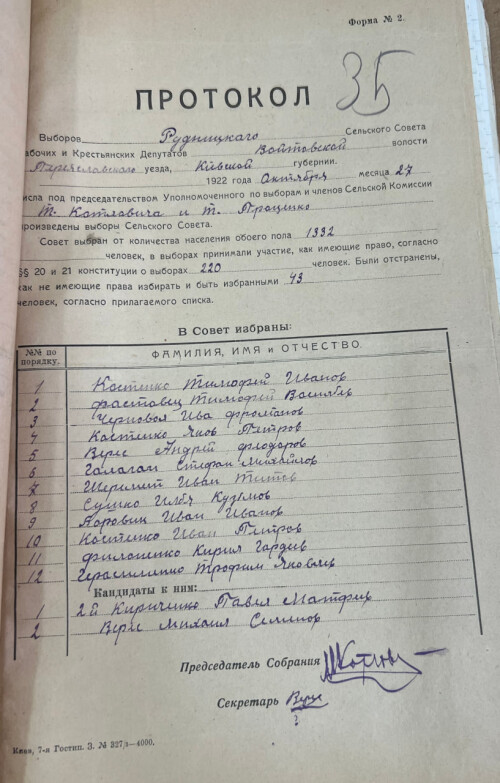 Форма № 2.
35
ПРОТОКОЛ
Выборов Рудницкаго Сельского Совета
абочих и Крестьянских Депутатов Войтовской волости
Переяславского уезда, Кіевской губернии.
1922 года Октября месяца 27
исла под председательством Уполномоченного по выборам и членов Сельской Комиссии
т. Котлавича и т. Проценко
произведены выборы Сельского Совета.
Совет выбран от количества населения обоего пола 1332
человек, в выборах принимали участие, как имеющие право, согласно
§§ 20 и 21 конституции о выборах 220 человек. Были отстранены,
как не имеющие права избирать и быть избранными 43
человек, согласно прилагаемого списка.
В Совет избраны:
№№ по порядку. ФАМИЛИЯ, ИМЯ и ОТЧЕСТВО.
1 Костенко Тимофей Иванов
2 Фастовец Тимофей Васильев
3 Черновол Ива
4 Костенко Яков Петров
5 Верис Андрей Федоров
6 Галаган Стефан Михайлов
7 Шеремет Иван Титов
8 Сушко Илья Кузьмов
9 Боровик Иван Иванов
10 Костенко Иван Петров
11 Филоненко Кирил Гордев
12 Герасименко Трофим Яковлев
Кандидаты к ним:
1 2й Кириченко Павел Матфиев
2 Верис Михаил Семинов
Председатель Собрания
Секретарь Верис
?
Киев, 7-я Гостип. З. № 327/з—4000.